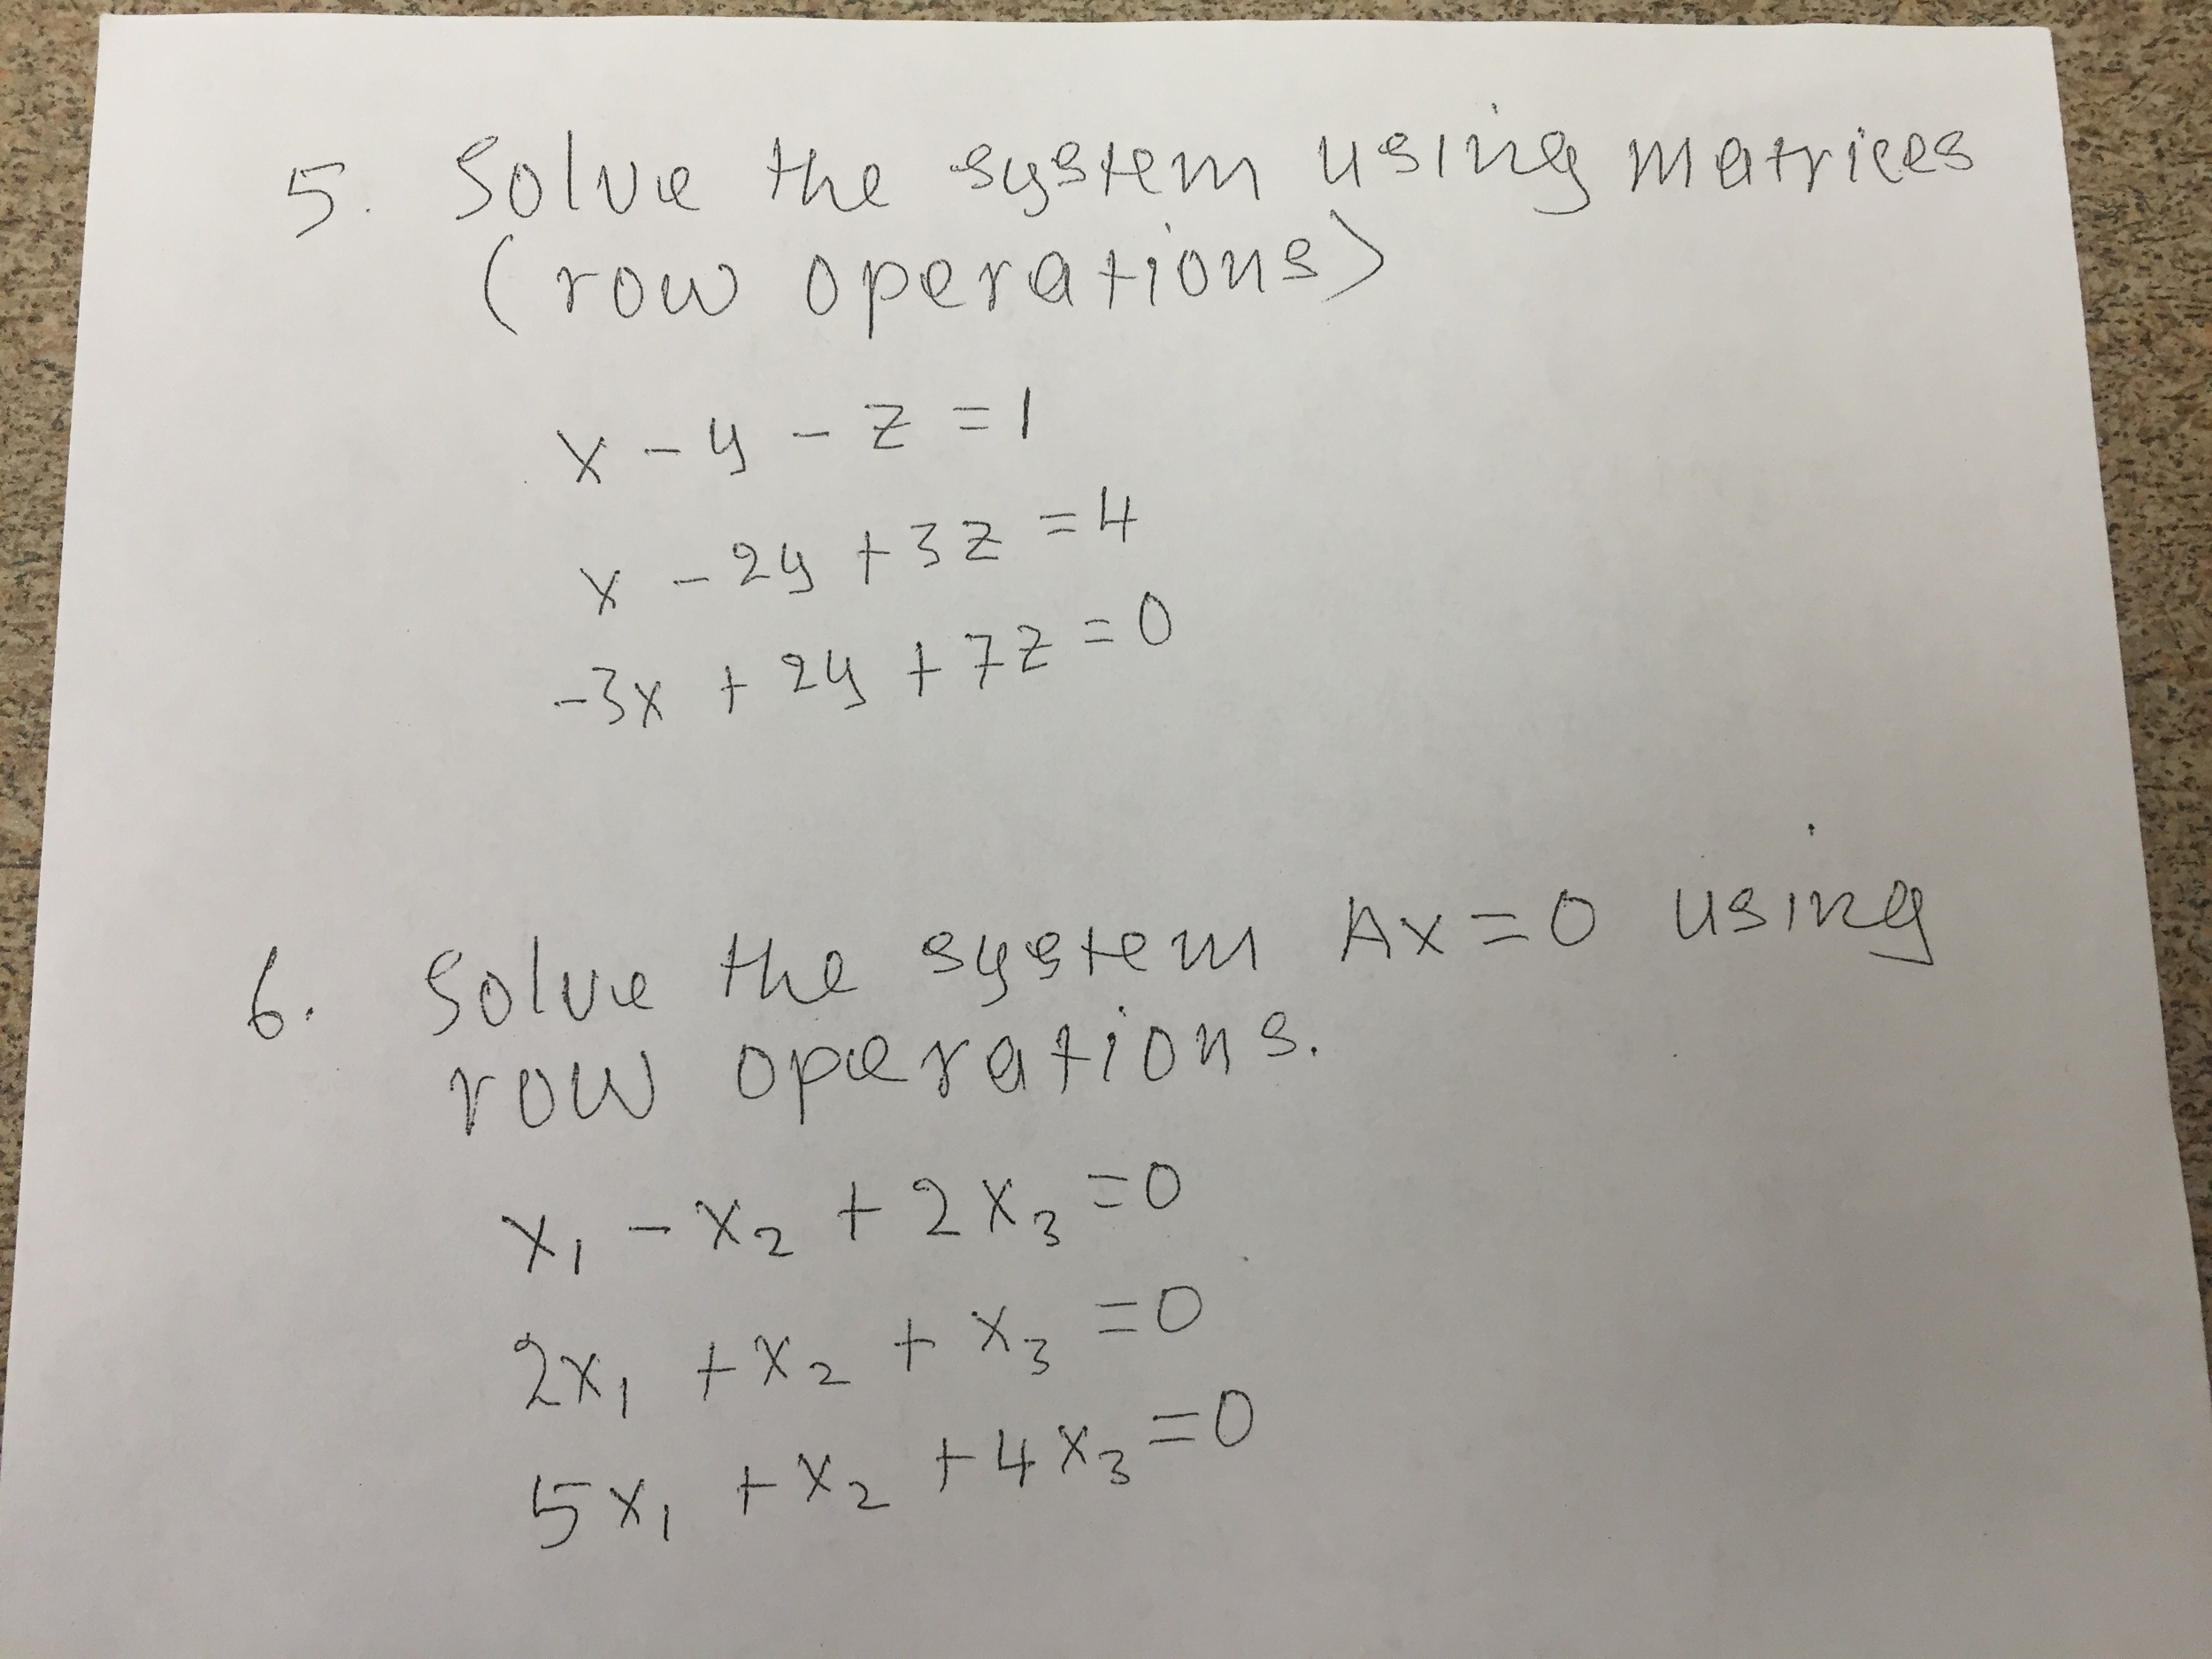 5. Solve the system using matrices
(row operations)
x - y - z = 1
x - 2y + 3z = 4
-3x + 2y + 7z = 0
6. Solve the system Ax = 0 using
row operations.
x₁ - x₂ + 2x₃ = 0
2x₁ + x₂ + x₃ = 0
5x₁ + x₂ + 4x₃ = 0